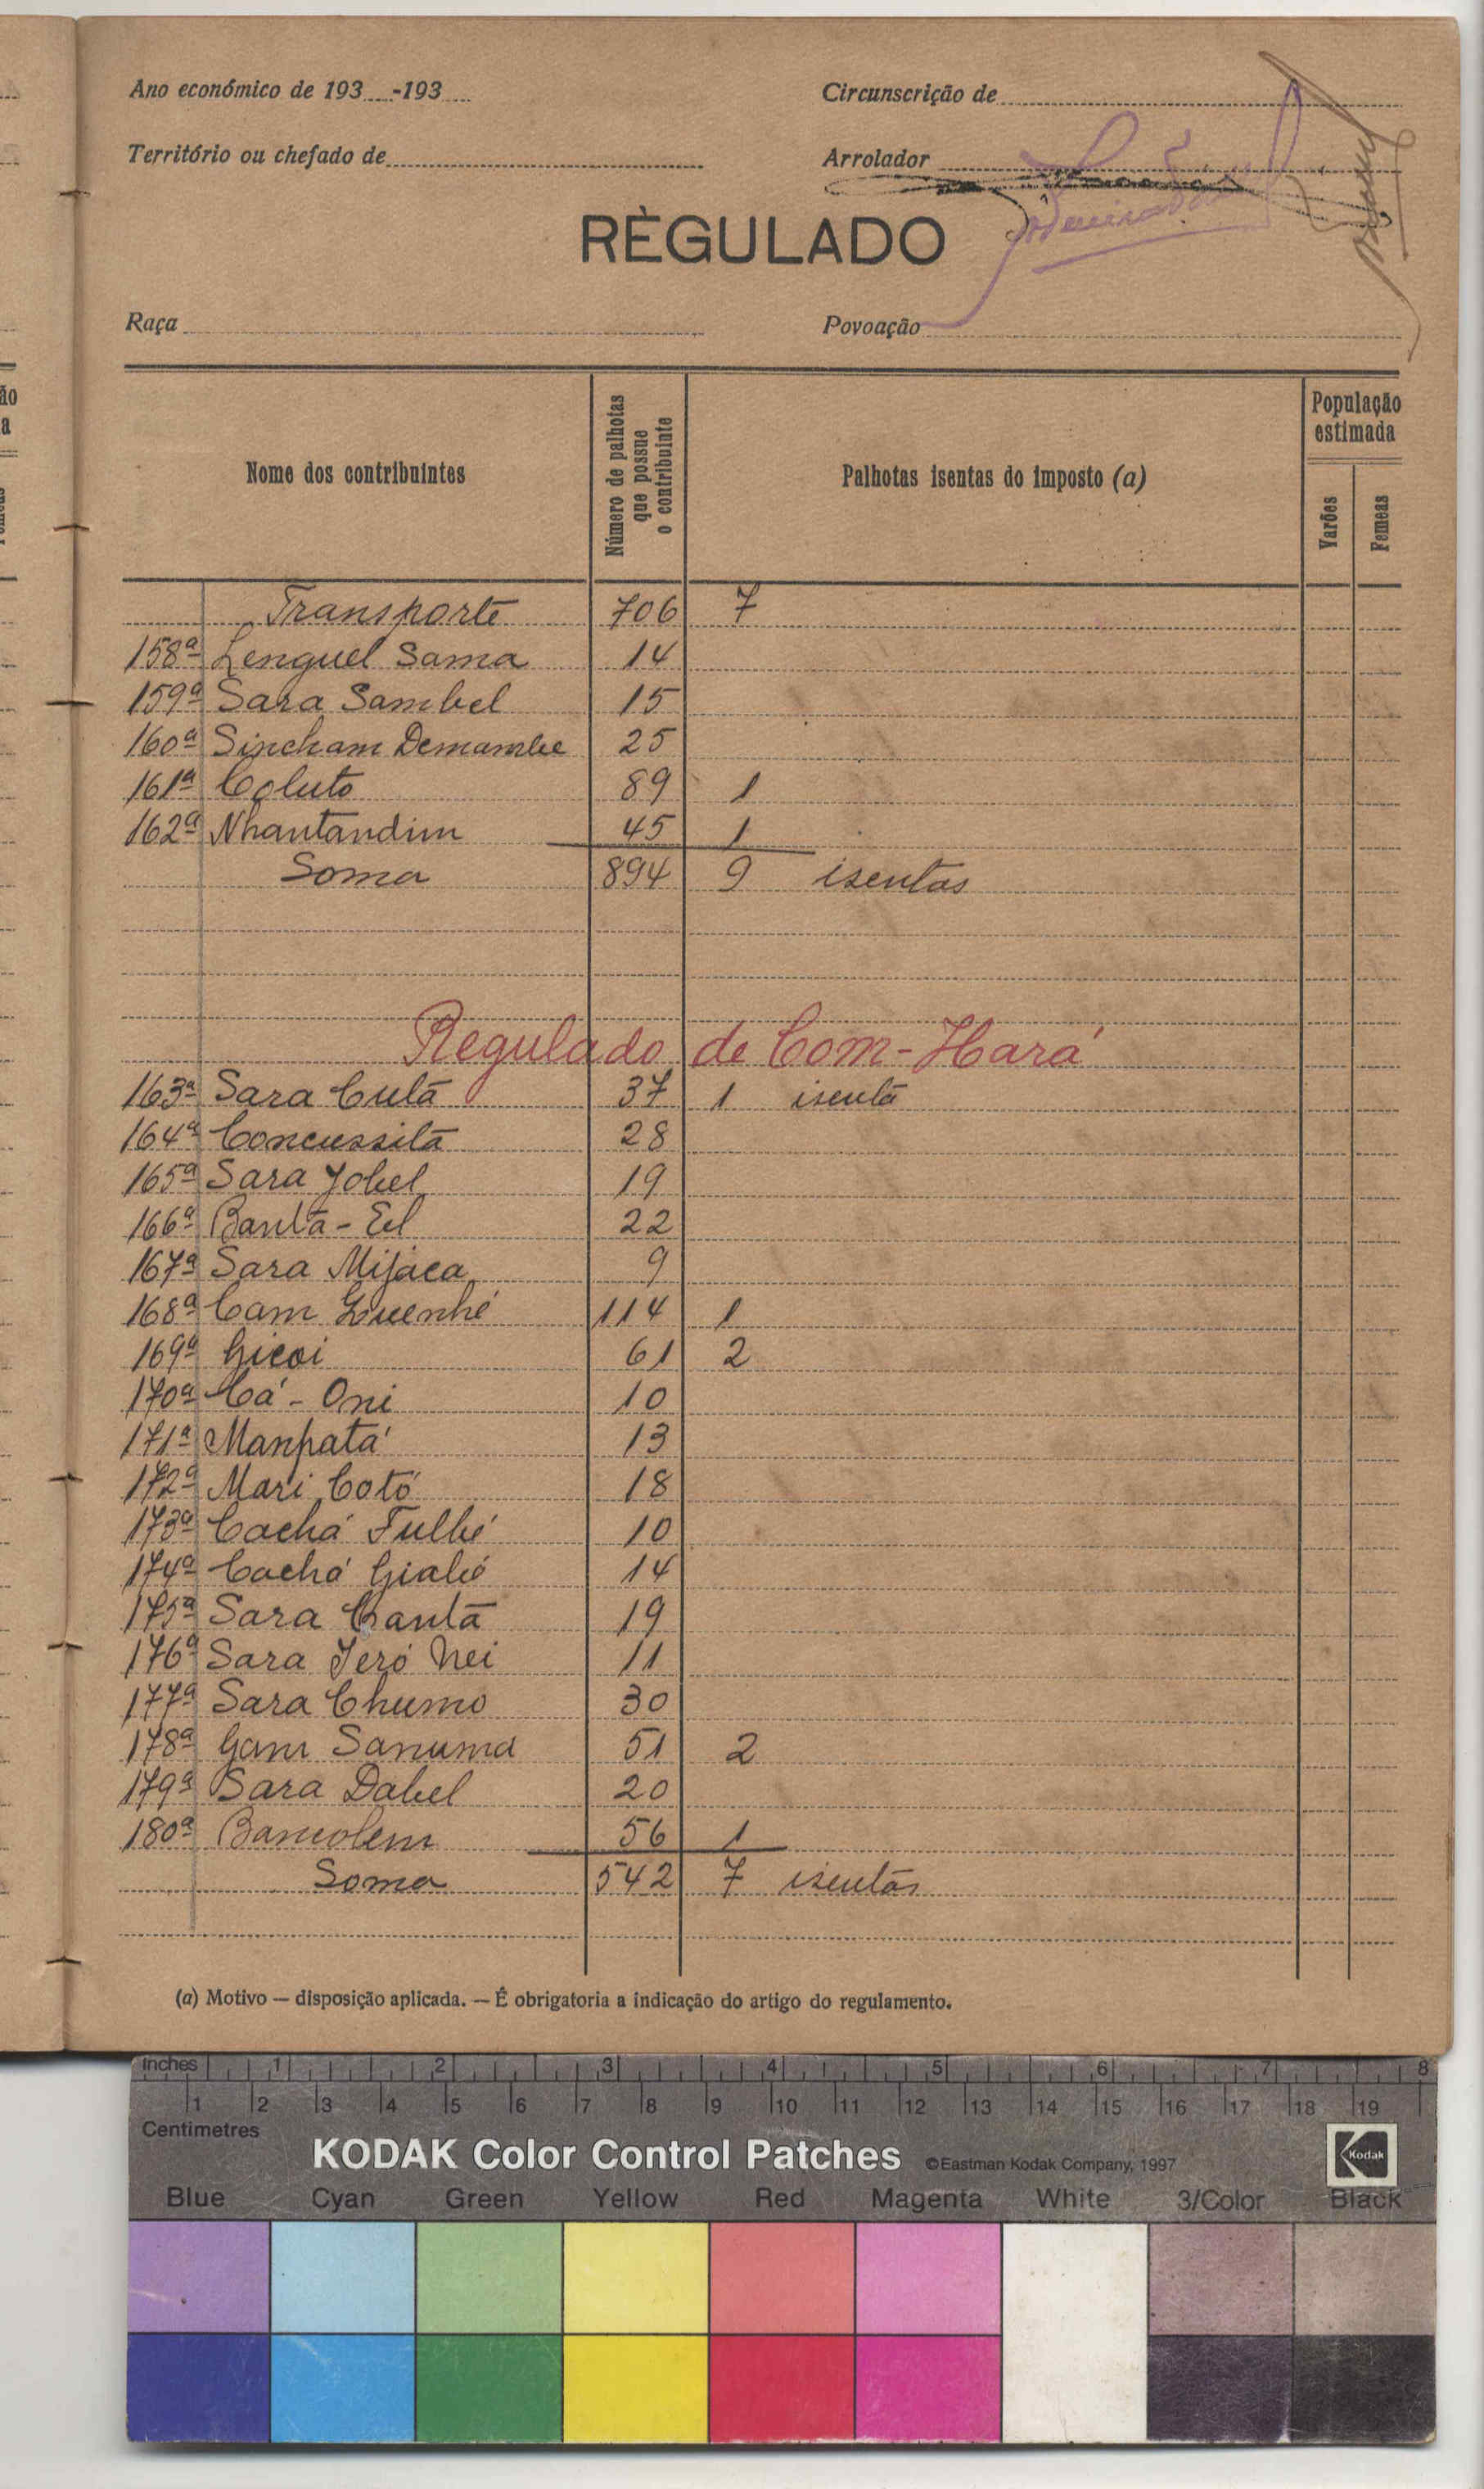 Ano económico de 193 -193
Circunscrição de
Território ou chefado de
Arrolador
RÈGULADO
Raça
Povoação
Nome dos contribuintes
Número de palhotas que possue o contribuinte
Palhotas isentas do imposto (a)
População estimada
Varões
Femeas
Transporte 706 7
158ª Lenguel Sama 14
159ª Sara Sambel 15
160ª Sincham Demambe 25
161ª Coluto 89 1
162ª Nhantandim 45 1
Soma 894 9 isentas
Regulado de Com-Hará
163ª Sara Cutã 37 1 isentã
164ª Concussitã 28
165ª Sara Jobel 19
166ª Bantã-Eel 22
167ª Sara Mijaca 9
168ª Cam Quenhé 114 1
169ª Gicoi 61 2
170ª Cá-Oni 10
171ª Manpatá 13
172ª Mari Cotó 18
173ª Cachá Fulbé 10
174ª Cachá Gialió 14
175ª Sara Bantã 19
176ª Sara Jeró Nei 11
177ª Sara Chumo 30
178ª Gam Sanuma 51 2
179ª Sara Dabel 20
180ª Bancolem 56 1
Soma 542 7 isentas
(a) Motivo — disposição aplicada. — É obrigatoria a indicação do artigo do regulamento.
Inches 1 2 3 4 5 6 7 8
1 2 3 4 5 6 7 8 9 10 11 12 13 14 15 16 17 18 19
Centimetres
KODAK Color Control Patches ©Eastman Kodak Company, 1997 Kodak
Blue Cyan Green Yellow Red Magenta White 3/Color Black